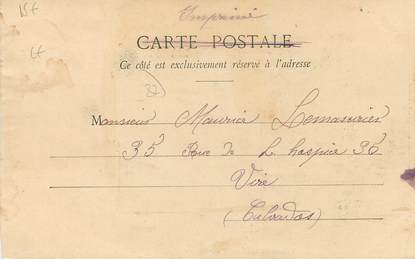 15€
6€
Imprimé
CARTE POSTALE
Ce côté est exclusivement réservé à l'adresse
Monsieur Maurice Lemasurier
35 Rue de L hospice 36
Vire
(Calvados)